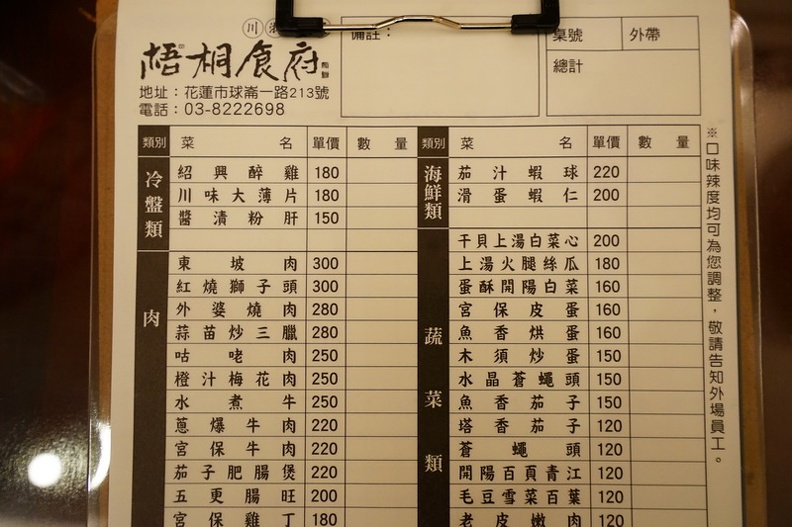 川
梧桐食府
地址：花蓮市球崙一路213號
電話：03-8222698
備註：
桌號 外帶
總計
類別 菜名 單價 數量
冷盤類
紹興醉雞 180
川味大薄片 180
醬漬粉肝 150
肉
東坡肉 300
紅燒獅子頭 300
外婆燒肉 280
蒜苗炒三臘 280
咕咾肉 250
橙汁梅花肉 250
水煮牛 250
蔥爆牛肉 220
宮保牛肉 220
茄子肥腸煲 220
五更腸旺 200
宮保雞丁 180
類別 菜名 單價 數量
海鮮類
茄汁蝦球 220
滑蛋蝦仁 200
蔬菜類
干貝上湯白菜心 200
上湯火腿絲瓜 180
蛋酥開陽白菜 160
宮保皮蛋 160
魚香烘蛋 160
木須炒蛋 150
水晶蒼蠅頭 150
魚香茄子 150
塔香茄子 120
蒼蠅頭 120
開陽百頁青江 120
毛豆雪菜百葉 120
老皮嫩肉 120
※口味辣度均可為您調整，敬請告知外場員工。